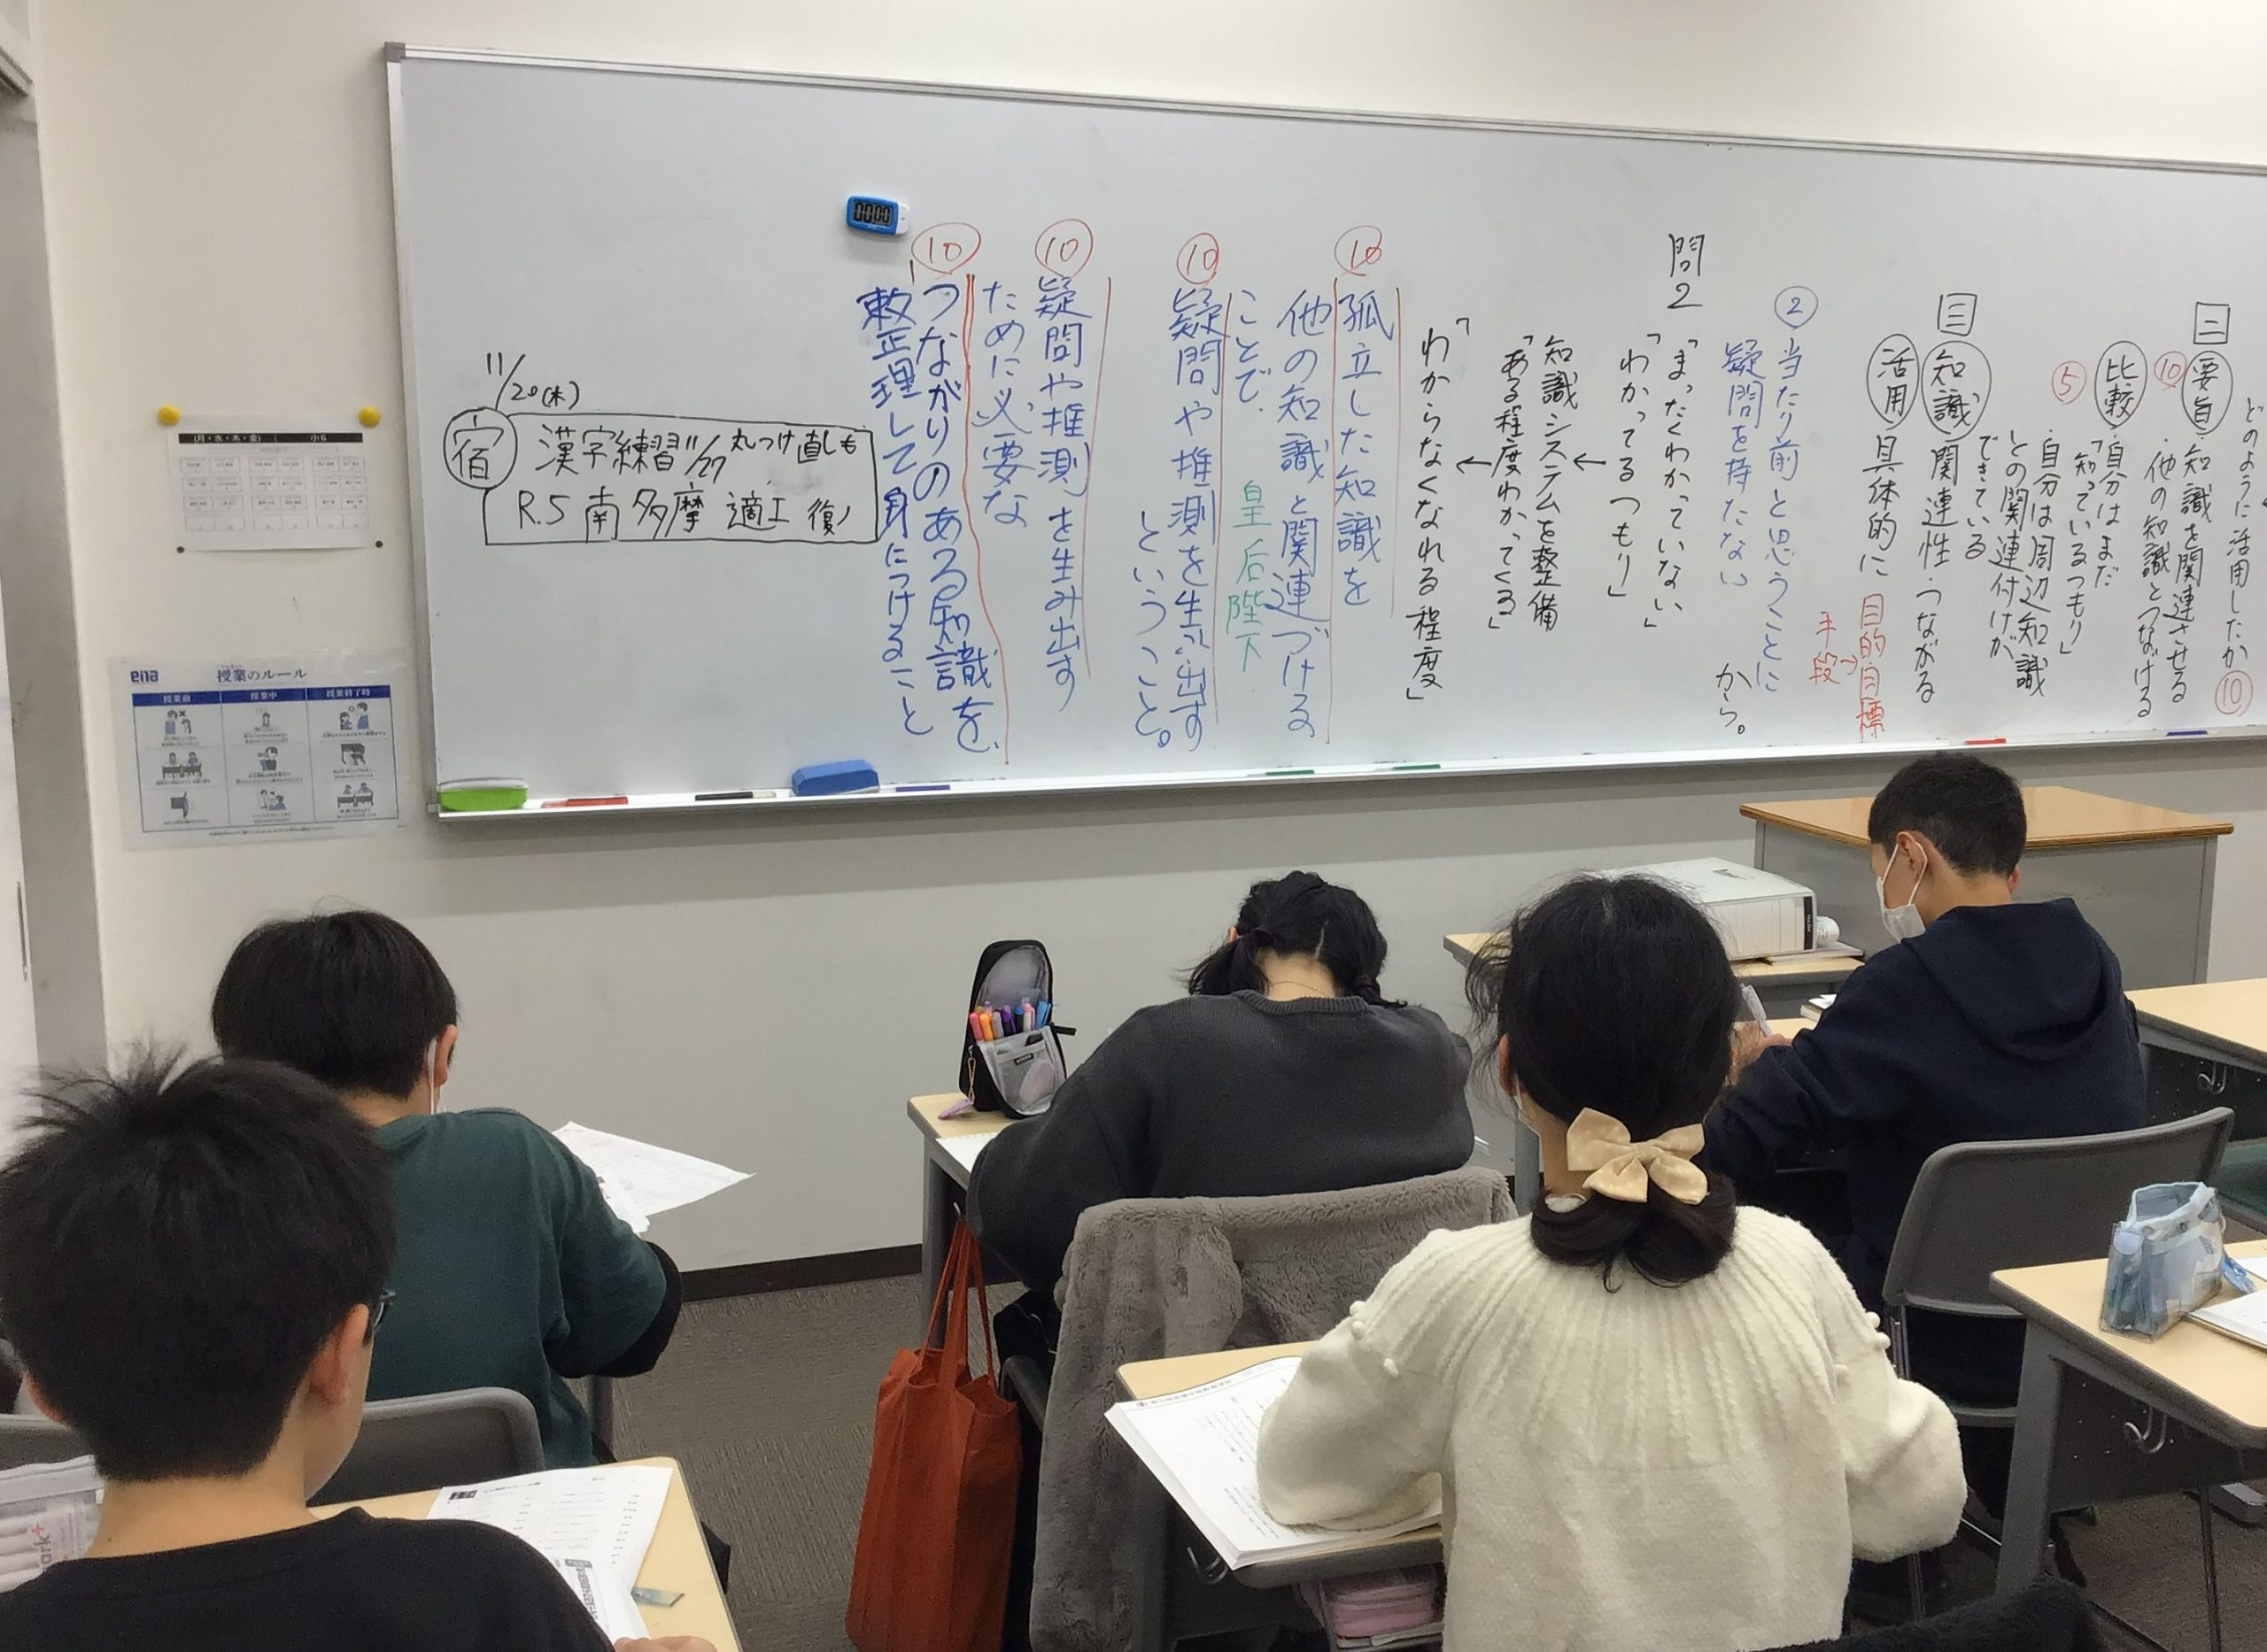 どのように活用したか⑩
二
要旨・知識を関連させる
⑩・他の知識とつなげる
比較・自分はまだ
「知っているつもり」
⑤・自分は周辺知識
との関連付けが
できている
三
知識・関連性・つながる
活用・具体的に
目的目標
手段→
②当たり前と思うことに
疑問を持たない
から。
問2
「まったくわかっていない」
「わかってるつもり」
知識システムを整備
「ある程度わかってくる」
「わからなくなれる程度」
⑩孤立した知識を
他の知識と関連づける
ことで、
皇后陛下
⑩疑問や推測を生み出す
ということ。
⑩疑問や推測を生み出す
ために必要な
⑩つながりのある知識を、
整理して身につけること
11/20(木)
宿
漢字練習11/27丸つけ直しも
R.5南多摩適Ⅰ復
(月・水・木・金) 小6
ena 授業のルール
授業前 授業中 授業終了時
00:00